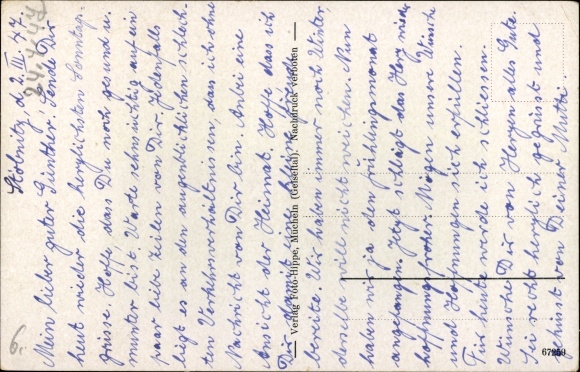 Stöbnitz, d. 2. III. 47.
24.4.47
Mein lieber guter Günther! Sende Dir
heut wieder die herzlichsten Sonntags-
grüsse. Hoffe, dass Du noch gesund u.
munter bist. Warte sehnsüchtig auf ein
paar liebe Zeilen von Dir. Jedenfalls
liegt es an den augenblicklichen schlech-
ten Verkehrsverhältnissen, das ich ohne
Nachricht von Dir bin. Anbei eine
Ansicht der Heimat. Hoffe das ich
Dir damit eine Freude
bereite. Wir haben immer noch Winter,
derselbe will nicht weichen. Nun
haben wir ja den Frühlingsmonat
angefangen. Jetzt schlägt das Herz wieder
hoffnungsfroher. Mögen unsre Wünsche
und Hoffnungen sich erfüllen.
Für heute werde ich schliessen.
Wünsche Dir von Herzen alles Gute.
Sei recht herzlich gegrüsst und
geküsst von Deiner Mutti.
Verlag Foto-Hippe, Mücheln (Geiseltal). Nachdruck verboten
67259
6.